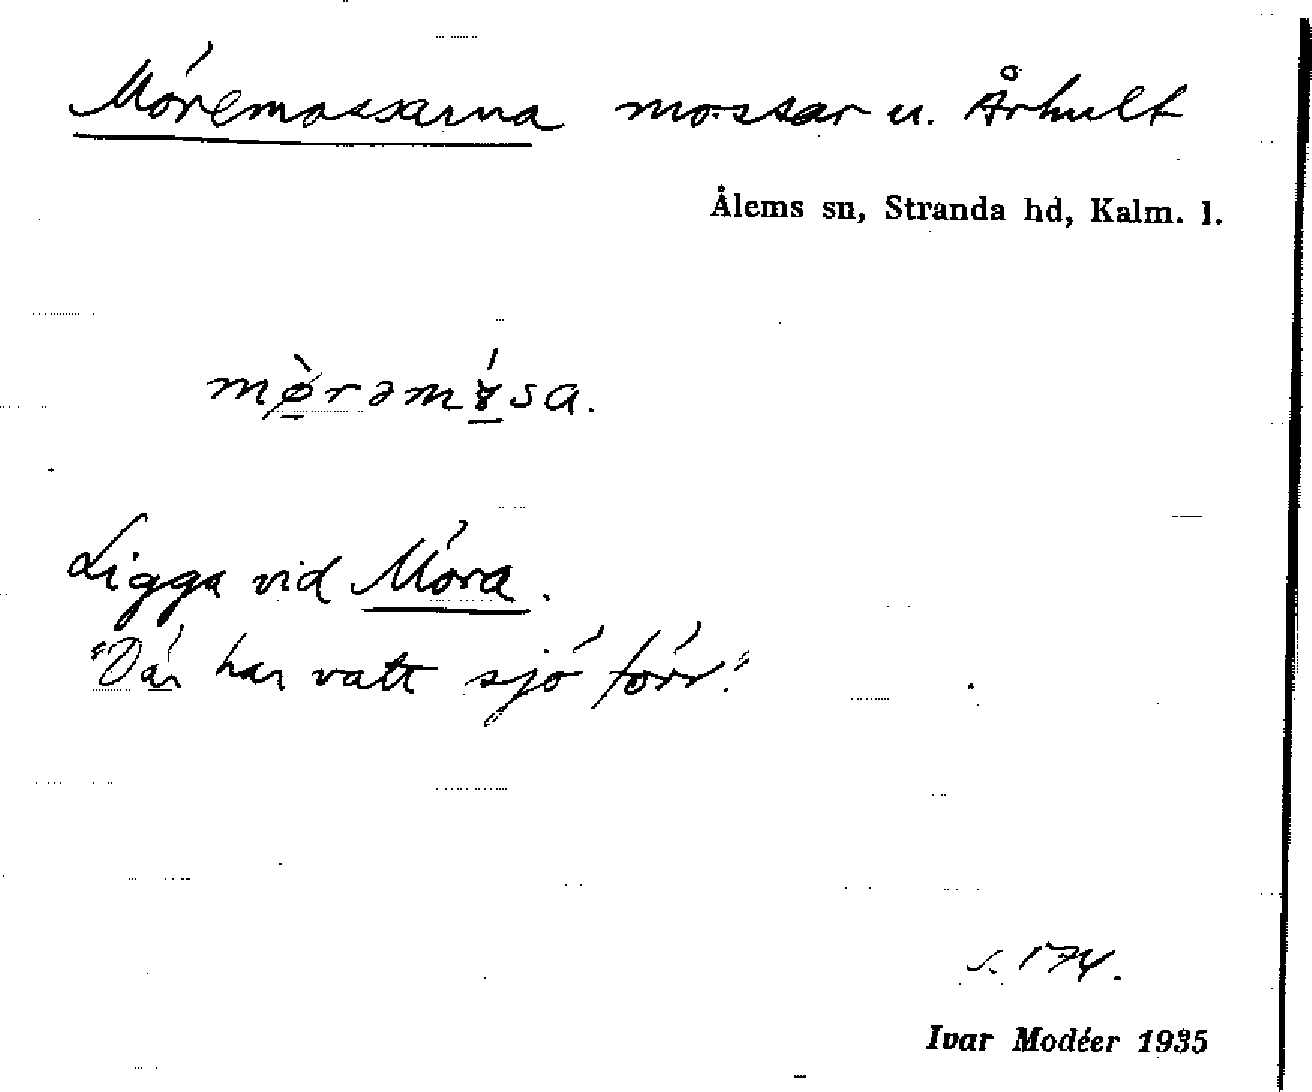 Möremossarna mossar u. Århult
Ålems sn, Stranda hd, Kalm. l.
mø̀rəmɤ́sa.
Ligga vid Möra.
"Där har vatt sjö förr."
s. 174.
Ivar Modéer 1935